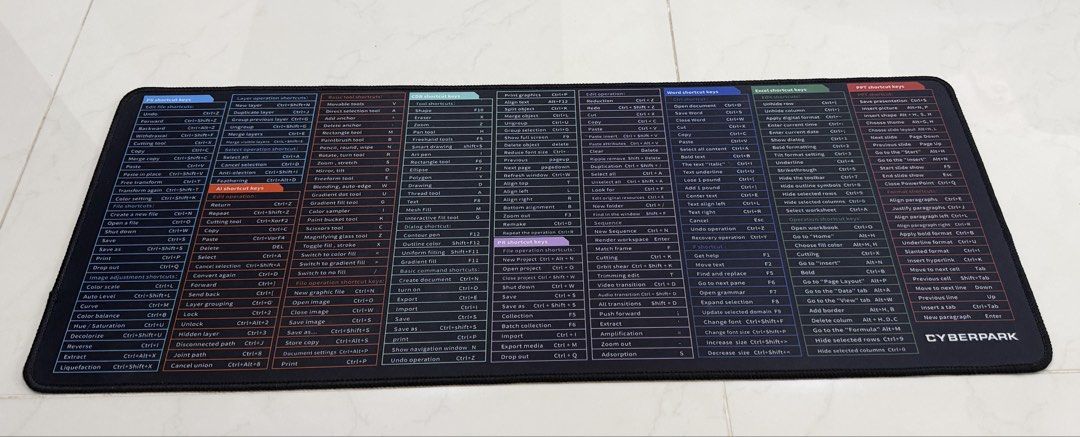 PS shortcut keys
Edit file shortcuts:
Undo Ctrl+Z
Forward Ctrl+Shift+Z
Backward Ctrl+Alt+Z
Withdrawal Shift+Ctrl+F
Cutting tool Ctrl+X
Copy Ctrl+C
Merge copy
Paste Ctrl+V
Paste in place
Free transform Ctrl+T
Transform again
Color setting
File shortcuts:
Create a new file Ctrl+N
Open a file Ctrl+O
Shut down Ctrl+W
Save Ctrl+S
Save as
Print Ctrl+P
Drop out Ctrl+Q
Image adjustment shortcuts:
Color scale Ctrl+L
Auto Level Ctrl+Shift+L
Curve Ctrl+M
Color balance Ctrl+B
Hue / Saturation Ctrl+U
Decolorize Ctrl+Shift+U
Reverse Ctrl+I
Extract Ctrl+Alt+X
Liquefaction Ctrl+Shift+X
Layer operation shortcuts:
New layer Ctrl+Shift+N
Duplicate layer Ctrl+J
Group previous layer Ctrl+G
Ungroup Ctrl+Shift+G
Merge layers Ctrl+E
Select operation shortcuts:
Select all Ctrl+A
Cancel selection Ctrl+D
Anti-selection Ctrl+Shift+I
Feathering Ctrl+Alt+D
AI shortcut keys
Edit operation:
Return Ctrl+Z
Repeat Ctrl+Shift+Z
Cutting tool Ctrl+XorF2
Copy Ctrl+C
Paste Ctrl+VorF4
Delete DEL
Select all Ctrl+A
Cancel selection
Convert again Ctrl+D
Forward Ctrl+]
Send back Ctrl+[
Layer grouping Ctrl+G
Lock Ctrl+2
Unlock Ctrl+Alt+2
Hidden layer Ctrl+3
Disconnected path Ctrl+J
Joint path Ctrl+8
Cancel union
Basic tool shortcuts:
Movable tools V
Direct selection tool A
Add anchor +
Delete anchor -
Rectangle tool M
Paintbrush tool B
Pencil, round, wipe N
Rotate, turn tool R
Zoom , stretch S
Mirror, tilt O
Freeform tool E
Blending, auto-edge W
Gradient dot tool U
Gradient fill tool G
Color sampler I
Paint bucket tool K
Scissors tool C
Magnifying glass tool Z
Toggle fill , stroke X
Switch to color fill <
Switch to gradient fill >
Switch to no fill /
File operation shortcut keys:
New graphic file Ctrl+N
Open image Ctrl+O
Close image Ctrl+W
Save image Ctrl+S
Save as... Ctrl+Shift+S
Store copy Ctrl+Alt+S
Document settings Ctrl+Alt+P
Print Ctrl+P
CDR shortcut keys
Tool shortcuts:
Shape F10
Eraser X
Zoom Z
Pen tool H
Freehand tools F5
Smart drawing shift+S
Art pen I
Rectangle tool F6
Ellipse F7
Polygon Y
Drawing D
A tool A
Text F8
Mesh Fill M
Interactive fill tool G
Dialog shortcut:
Contour pen F12
Outline color Shift+F12
Uniform filling Shift+F11
Gradient fill F11
Basic command shortcuts:
Create document Ctrl+N
Turn on Ctrl+O
Export Ctrl+E
Import Ctrl+I
Save Ctrl+S
Save as Ctrl+shift+S
print Ctrl+P
Show navigation window N
Undo operation Ctrl+Z
Print graphics Ctrl+P
Align text Alt+F12
Split object Ctrl+K
Merge object Ctrl+L
Ungroup Ctrl+U
Group selection Ctrl+G
Show full screen F9
Delete object delete
Reduce font size
Previous pageup
Next page pagedown
Refresh window Ctrl+W
Align top T
Align left L
Align right R
Bottom alignment B
Zoom out F3
Remake
Repeat the operation Ctrl+R
PR shortcut keys
File operation shortcuts:
New Project Ctrl + Alt + N
Open project Ctrl + O
Close project Ctrl + Shift + W
Shut down Ctrl + W
Save Ctrl + S
Save as Ctrl + Shift + S
Collection F5
Batch collection F6
Import Ctrl + I
Export media Ctrl + M
Drop out Ctrl + Q
Edit operation:
Reduction Ctrl + Z
Redo Ctrl + Shift + Z
Cut Ctrl + X
Copy Ctrl + C
Paste Ctrl + V
Paste insert Ctrl + Shift + V
Paste attributes Ctrl + Alt + V
Clear Delete
Ripple remove Shift + Delete
Duplication Ctrl + Shift + /
Select all Ctrl + A
Unselect all Ctrl + Shift + A
Look for Ctrl + F
Edit original resources Ctrl + E
New folder Ctrl + /
Find in the window Shift + F
Sequence
New Sequence Ctrl + N
Render workspace Enter
Match frame F
Cutting Ctrl + K
Orbit shear Ctrl + Shift + K
Trimming edit T
Video transition Ctrl + D
Audio transition Ctrl + Shift + D
All transitions Shift + D
Push forward ;
Extract '
Amplification =
Zoom out -
Adsorption S
Word shortcut keys
Open document Ctrl+O
Save Word Ctrl+S
Close Word Ctrl+W
Cut Ctrl+X
Copy Ctrl+C
Paste Ctrl+V
Select all content Ctrl+A
Bold text Ctrl+B
The text "Italic" Ctrl+I
Text underline Ctrl+U
Lose 1 pound Ctrl+[
Add 1 pound Ctrl+]
Center text Ctrl+E
Text align left Ctrl+L
Text right Ctrl+R
Cancel Esc
Undo operation Ctrl+Z
Recovery operation Ctrl+Y
F shortcut
Get help F1
Move text F2
Find and replace F5
Go to next pane F6
Open grammar F7
Expand selection F8
Update selected domain F9
Change font Ctrl+Shift+F
Change font size Ctrl+Shift+P
Increase size Ctrl+Shift+>
Decrease size Ctrl+Shift+<
Excel shortcut keys
Edit shortcuts:
Unhide row
Unhide column
Apply digital format
Enter current time
Enter current date Ctrl+;
Show dialog Ctrl+1
Bold formatting Ctrl+2
Tilt format setting Ctrl+3
Underline Ctrl+4
Strikethrough Ctrl+5
Hide the toolbar Ctrl+7
Hide outline symbols Ctrl+8
Hide selected rows Ctrl+9
Hide selected columns Ctrl+0
Select worksheet Ctrl+A
Operations shortcuts
Open workbook Ctrl+O
Go to "Home" Alt+H
Choose fill color Alt+H, H
Cutting Ctrl+X
Go to "Insert" Alt+N
Bold Ctrl+B
Go to "Page Layout" Alt+P
Go to "Data" tab Alt+A
Go to the "View" tab Alt+W
Add border Alt+H, B
Delete column Alt + H, D, C
Go to the "Formula" Alt+M
Hide selected rows Ctrl+9
Hide selected columns Ctrl+0
PPT shortcut keys
Save presentation Ctrl+S
Insert picture Alt+N, P
Insert shape Alt + H, S, H
Choose theme Alt+G, H
Choose slide layout Alt+H, L
Next slide Page Down
Previous slide Page Up
Go to the "Start" Alt+H
Go to the "Insert" Alt+N
Start slide show F5
End slide show Esc
Close PowerPoint Ctrl+Q
Format shortcuts
Align paragraphs Ctrl+E
Justify paragraphs Ctrl+J
Align paragraph left Ctrl+L
Align paragraph right Ctrl+R
Apply bold format Ctrl+B
Underline format Ctrl+U
Slanted format Ctrl+I
Insert hyperlink Ctrl+K
Move to next cell Tab
Previous cell Shift+Tab
Move to next line Down
Previous line Up
Insert a tab Ctrl+Tab
New paragraph Enter
CYBERPARK